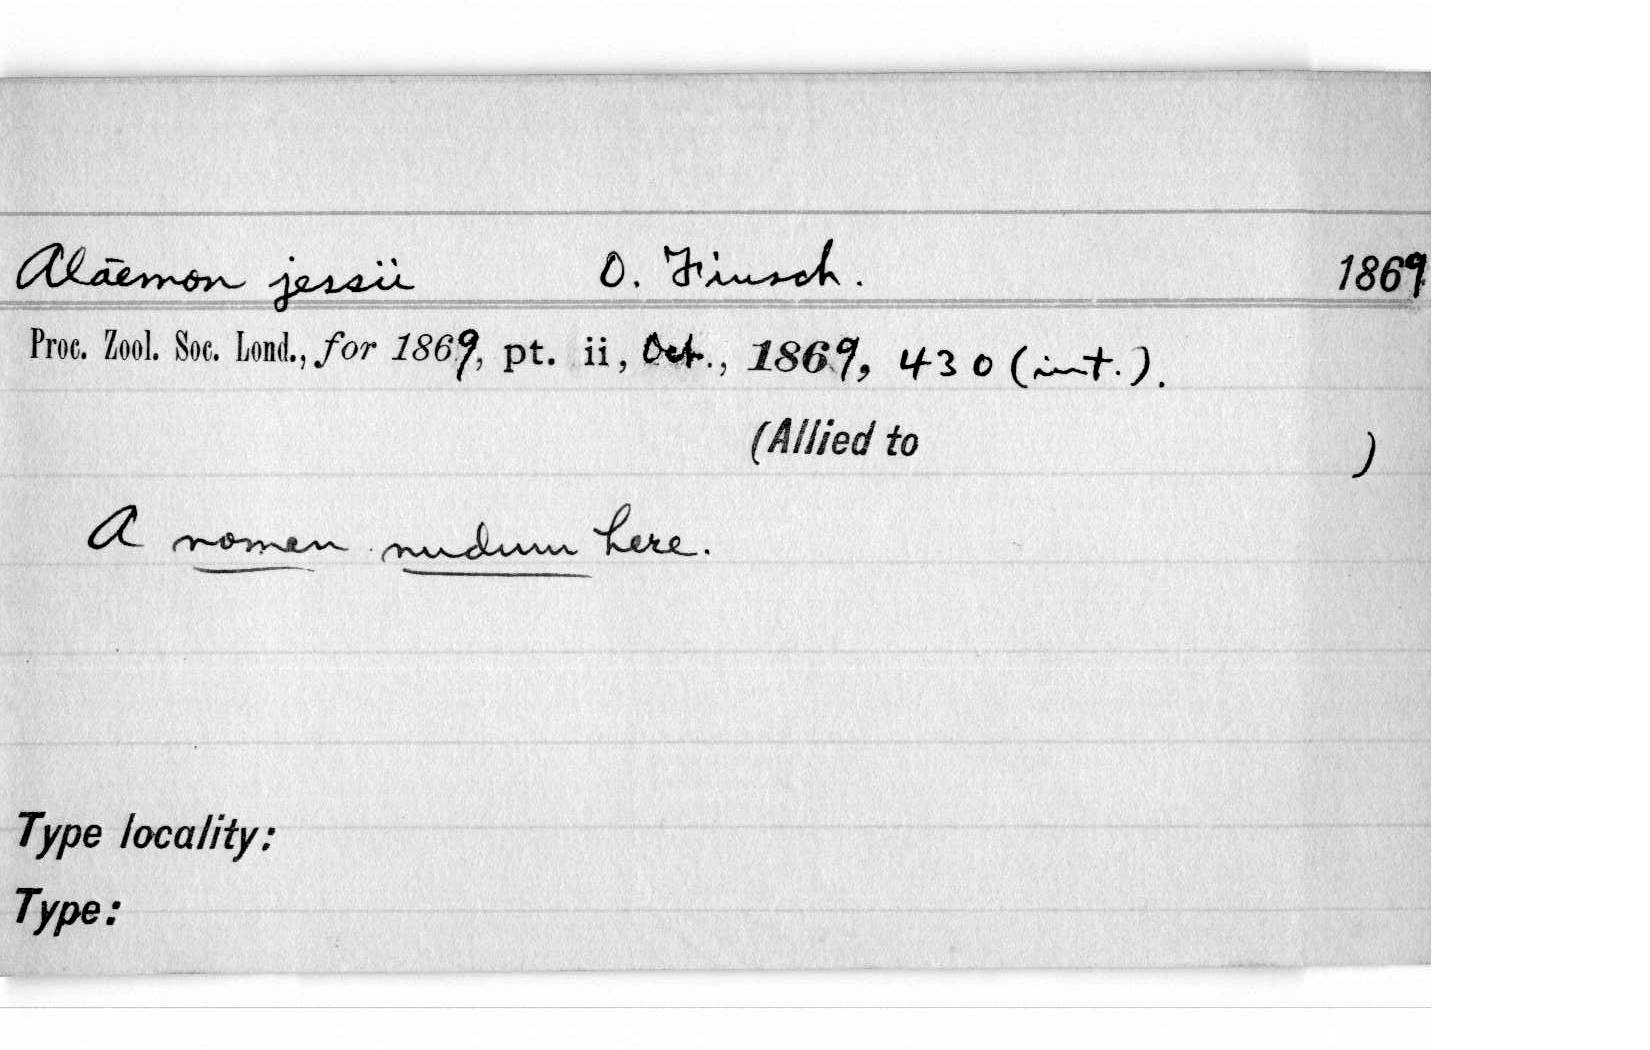 Alāemon jessii O. Finsch. 1869
Proc. Zool. Soc. Lond., for 1869, pt. ii, Oct., 1869, 430 (int.).
(Allied to )
A nomen nudum here.
Type locality:
Type: